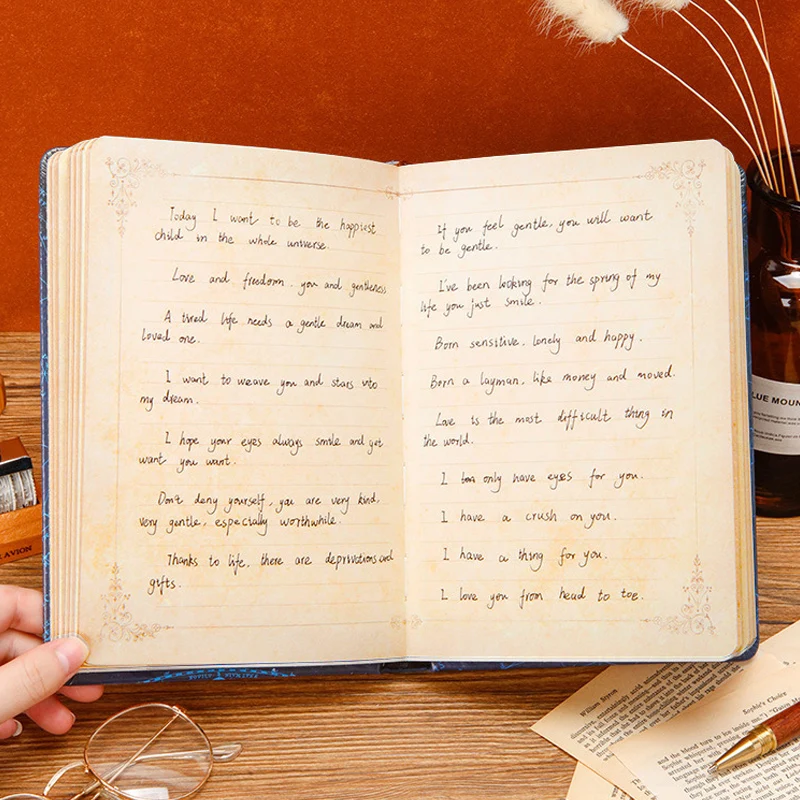 Today I want to be the happiest
child in the whole universe.
Love and freedom. you and gentleness
A tired life needs a gentle dream and
loved one.
I want to weave you and stars into
my dream.
I hope your eyes always smile and get
want you want.
Don't deny yourself, you are very kind,
very gentle, especially worthwhile.
Thanks to life, there are deprivations and
gifts.
If you feel gentle, you will want
to be gentle.
I've been looking for the spring of my
life you just smile.
Born sensitive, lonely and happy.
Born a layman, like money and moved.
Love is the most difficult thing in
the world.
I only have eyes for you.
I have a crush on you.
I have a thing for you.
I love you from head to toe.
AVION
LUE MOUN
William Styron
Sophie's Choice